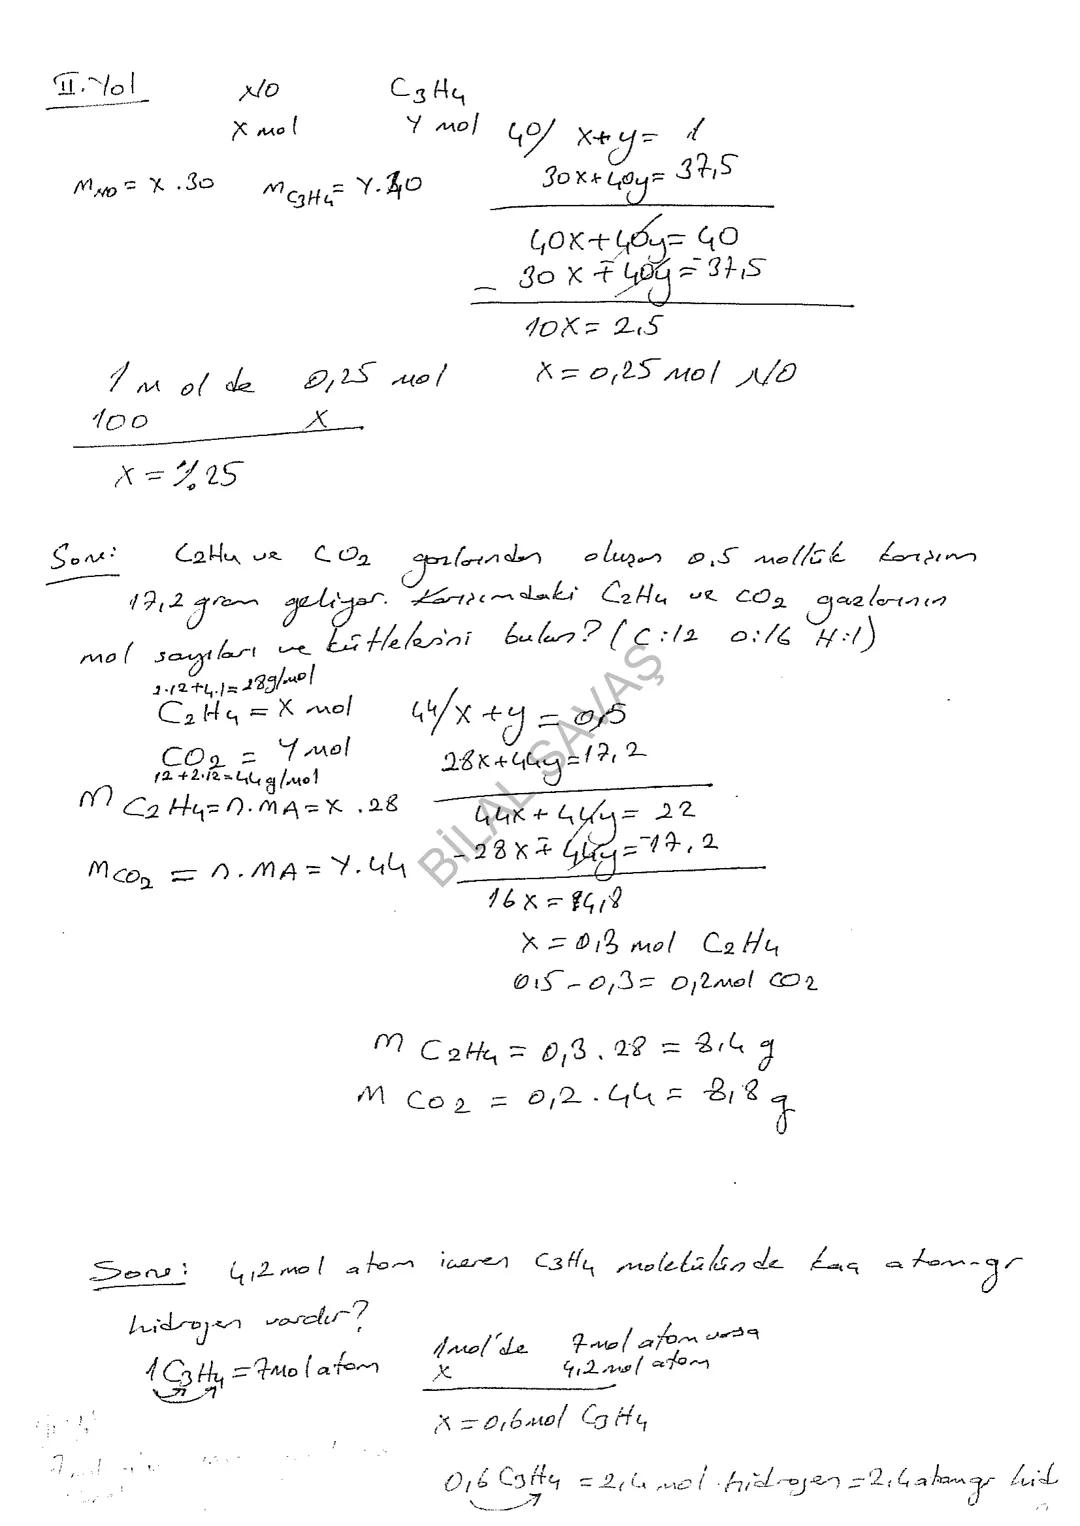 II. Yol NO C3H4
X mol Y mol 40/ x+y= 1
mNO = X.30 mC3H4= Y.40 30x+40y= 37,5
40x+40y= 40
- 30x ∓ 40y = -37,5
10x= 2,5
1 mol de 0,25 mol X=0,25 mol NO
100 X
X = %25
Soru: C2H4 ve CO2 gazlarından oluşan 0,5 mollük karışım
17,2 gram geliyor. Karışımdaki C2H4 ve CO2 gazlarının
mol sayıları ve kütlelerini bulun? (C:12 O:16 H:1)
2.12+4.1=28g/mol
C2H4 = X mol 44/x+y=0,5
CO2 = Y mol 28x+44y=17,2
12+2.12=44g/mol
m C2H4=n.MA=X.28 44x+44y= 22
mCO2 = n.MA= Y.44 -28x∓44y=-17,2
16x=4,8
X=0,3 mol C2H4
0,5-0,3= 0,2mol CO2
m C2H4 = 0,3.28 = 8,4 g
m CO2 = 0,2.44= 8,8 g
BİLAL SAVAŞ
Soru: 4,2mol atom iceren C3H4 molekülünde kaç atom-gr
hidrojen vardır?
1mol'de 7mol atom varsa
1C3H4=7molatom X 4,2mol atom
X=0,6mol C3H4
0,6 C3H4 = 2,4 mol hidrojen=2,4atomgr hid